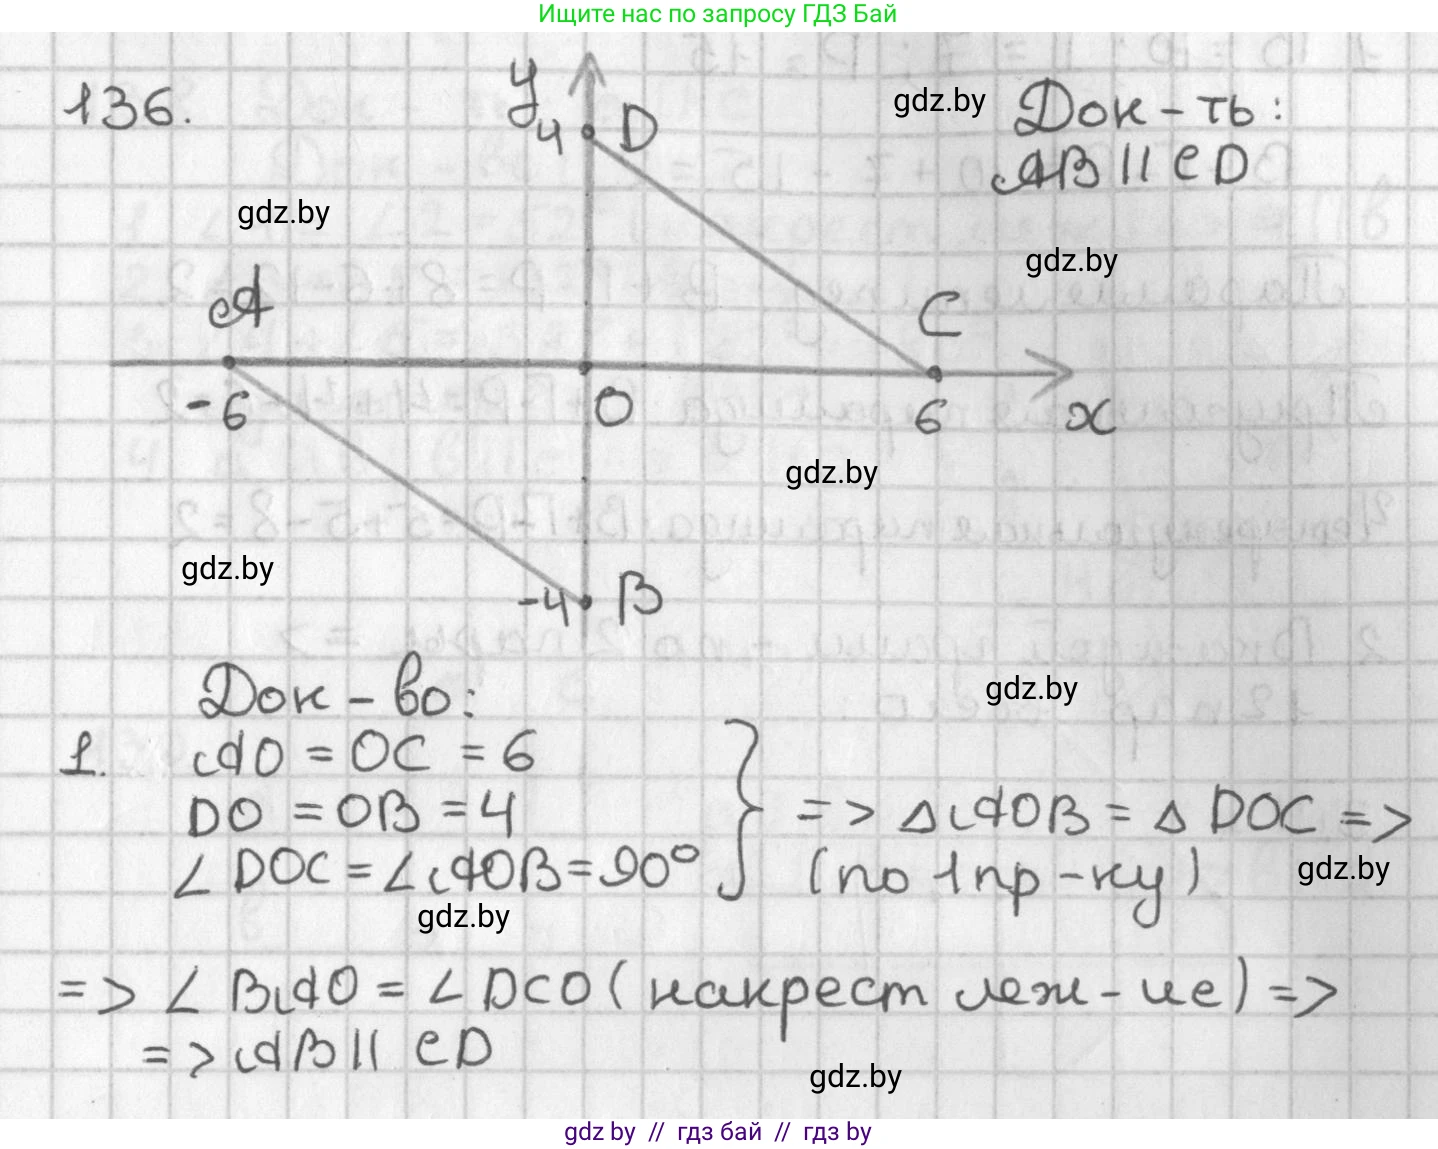 Ищите нас по запросу ГДЗ Бай
136.
y
4 D
gdz.by
Док-ть:
AB || CD
gdz.by
gdz.by
A
C
-6
O
6
x
gdz.by
gdz.by
-4 B
Док-во:
gdz.by
1. AO = OC = 6
DO = OB = 4
∠DOC = ∠AOB = 90°
=> △AOB = △DOC =>
(по 1 пр-ку)
gdz.by
gdz.by
=> ∠BAO = ∠DCO (накрест леж-ие) =>
=> AB || CD
gdz.by
gdz.by // гдз бай // гдз by